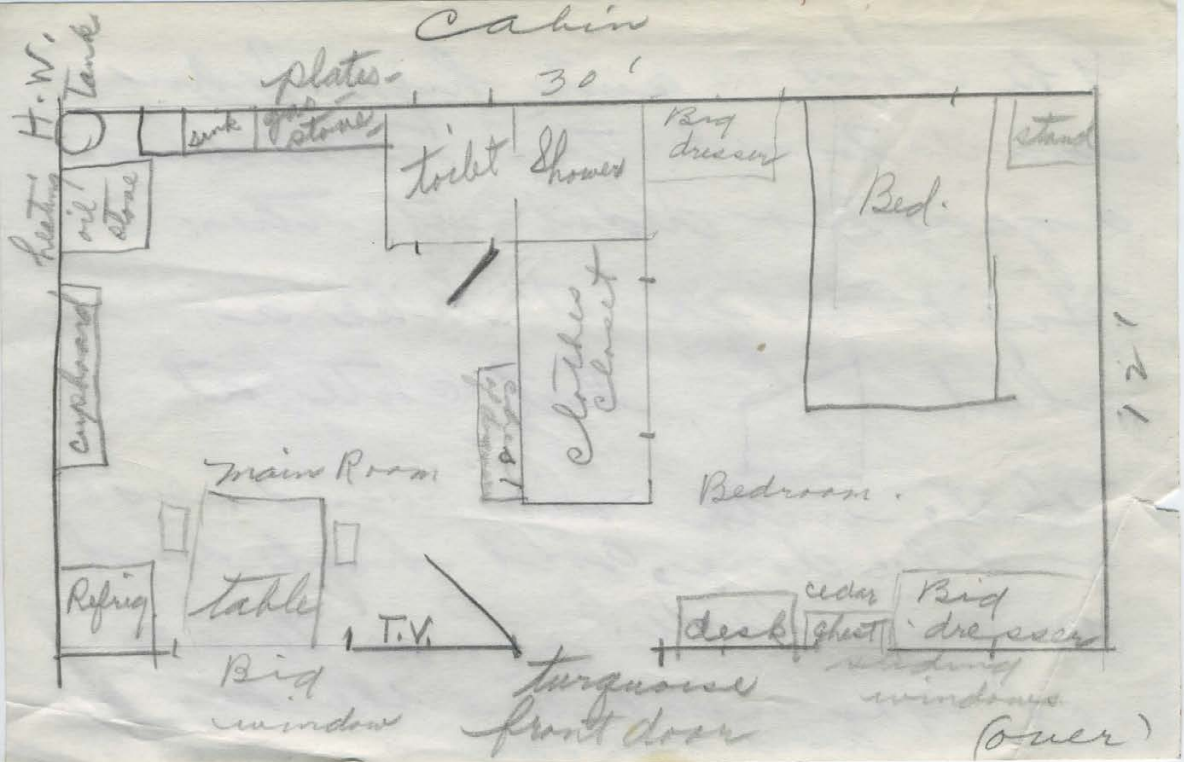 Cabin
H.W.
Tank
30'
plates-
gas
stove
sink
toilet
Shower
Big
dresser
Bed.
stand
heating
oil
stove
cupboard
Clothes
Closet
12'
main Room
Bedroom.
Refrig
table
T.V.
desk
cedar
chest
Big
dresser
Big
window
turquoise
front door
sliding
windows
(over)